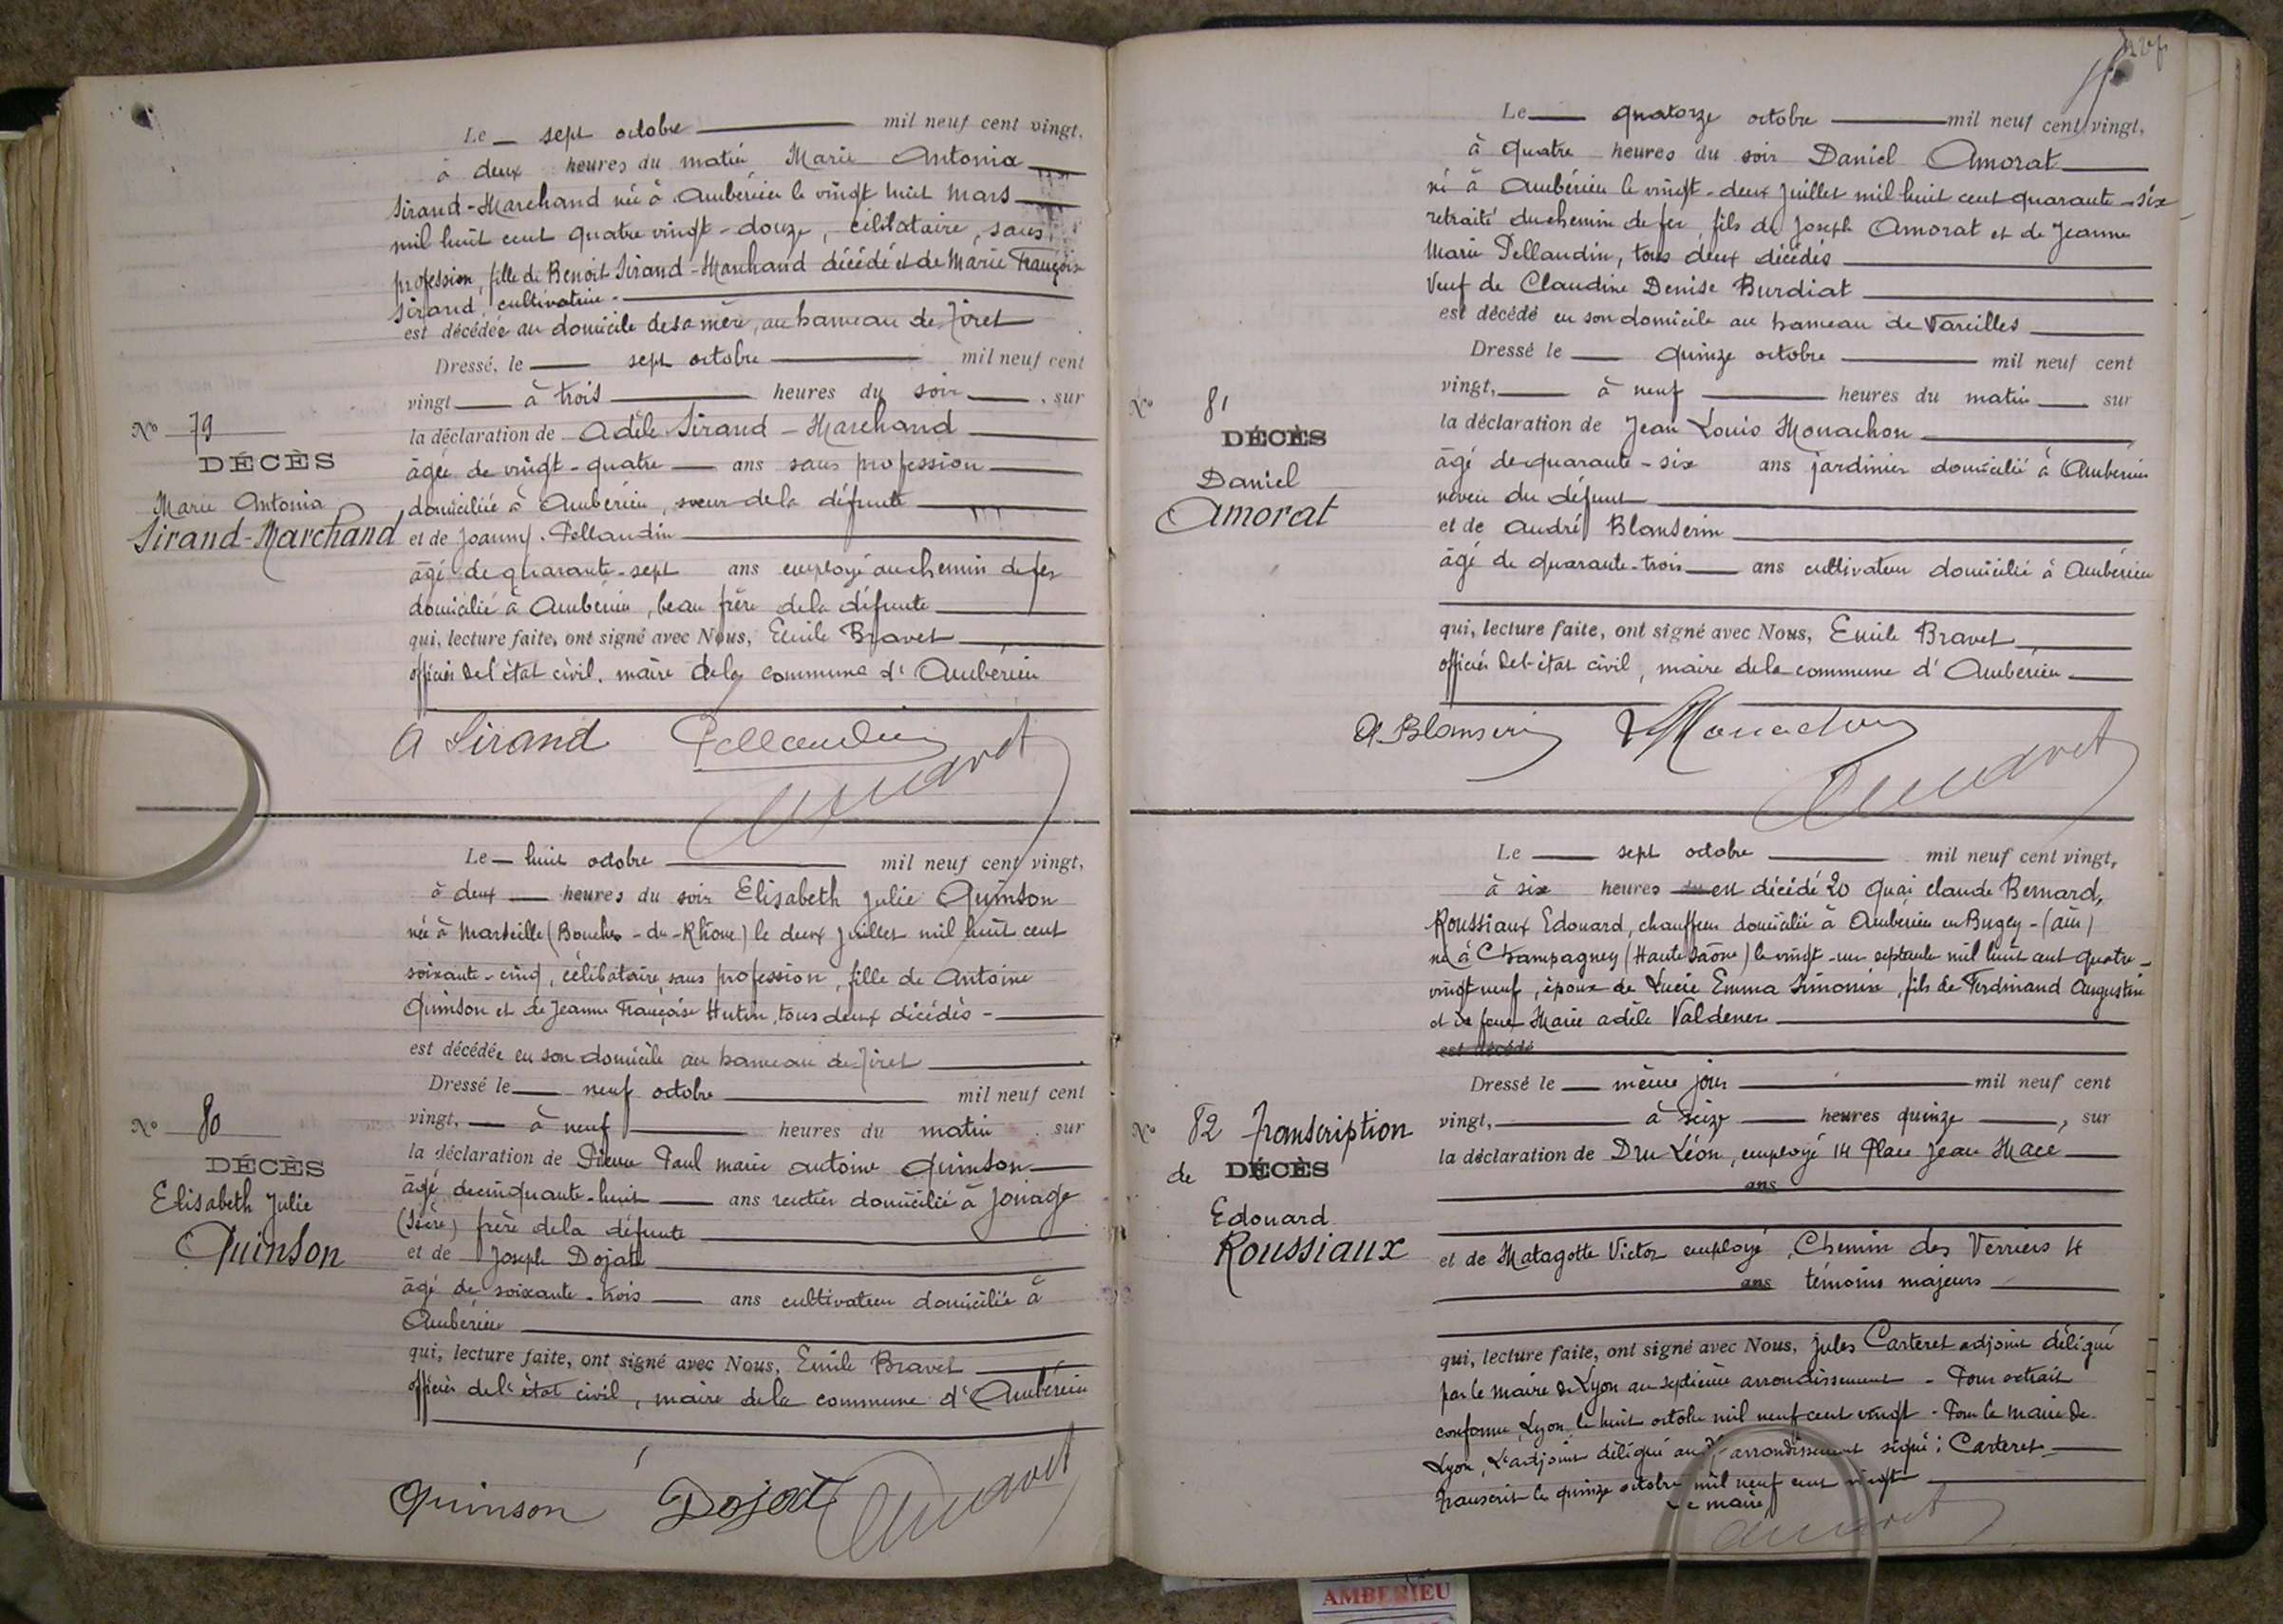 Le — sept octobre — mil neuf cent vingt,
à deux heures du matin Marie Antonia —
Sirand-Marchand née à Ambérieu le vingt huit mars —
mil huit cent quatre vingt-douze, célibataire, sans
profession, fille de Benoit Sirand-Marchand décédé et de Marie Françoise
Sirand, cultivatrice. —
est décédée au domicile de sa mère, au hameau de Tiret
Dressé, le — sept octobre — mil neuf cent
vingt — à trois — heures du soir —, sur
la déclaration de Adèle Sirand-Marchand —
âgée de vingt-quatre — ans sans profession —
domiciliée à Ambérieu, sœur de la défunte —
et de Joanny Pellaudin —
âgé de quarante-sept ans employé au chemin de fer
domicilié à Ambérieu, beau frère de la défunte —
qui, lecture faite, ont signé avec Nous, Emile Bravet —
officier de l'état civil, maire de la commune d'Ambérieu
A Sirand Pellaudin
Bravet
No 79
DÉCÈS
Marie Antonia
Sirand-Marchand
Le — huit octobre — mil neuf cent vingt,
à deux — heures du soir Elisabeth Julie Quinson
née à Marseille (Bouches-du-Rhône) le deux juillet mil huit cent
soixante-cinq, célibataire, sans profession, fille de Antoine
Quinson et de Jeanne Françoise Hutin, tous deux décédés —
est décédée en son domicile au hameau de Tiret —
Dressé le — neuf octobre — mil neuf cent
vingt, — à neuf — heures du matin . sur
la déclaration de Pierre Paul Marie Antoine Quinson —
âgé de cinquante-huit — ans rentier domicilié à Jonage
(Isère) frère de la défunte —
et de Joseph Dojat —
âgé de soixante-trois — ans cultivateur domicilié à
Ambérieu —
qui, lecture faite, ont signé avec Nous, Emile Bravet —
officier de l'état civil, maire de la commune d'Ambérieu
Quinson Dojat Bravet
No 80
DÉCÈS
Elisabeth Julie
Quinson
Le — quatorze octobre — mil neuf cent vingt,
à quatre heures du soir Daniel Amorat —
né à Ambérieu le vingt-deux juillet mil huit cent quarante-six
retraité du chemin de fer, fils de Joseph Amorat et de Jeanne
Marie Pellaudin, tous deux décédés —
Veuf de Claudine Denise Burdiat —
est décédé en son domicile au hameau de Vareilles —
Dressé le — quinze octobre — mil neuf cent
vingt, — à neuf — heures du matin — sur
la déclaration de Jean Louis Monachon —
âgé de quarante-six ans jardinier domicilié à Ambérieu
neveu du défunt —
et de André Blanserin —
âgé de quarante-trois — ans cultivateur domicilié à Ambérieu
qui, lecture faite, ont signé avec Nous, Emile Bravet —
officier de l'état civil, maire de la commune d'Ambérieu —
A Blanserin Monachon
Bravet
No 81
DÉCÈS
Daniel
Amorat
Le — sept octobre — mil neuf cent vingt,
à six heures est décédé 20 Quai Claude Bernard,
Roussiaux Edouard, chauffeur domicilié à Ambérieu en Bugey-(Ain)
né à Champagney (Haute Saône) le vingt-un septembre mil huit cent quatre-
vingt neuf, époux de Lucie Emma Simonin, fils de Ferdinand Augustin
et de feue Marie Adèle Valdener —
est décédé
Dressé le — même jour — mil neuf cent
vingt, — à seize — heures quinze —, sur
la déclaration de Dru Léon, employé 14 Place Jean Macé —
ans
et de Matagotte Victor employé, Chemin des Verriers 4
ans témoins majeurs —
qui, lecture faite, ont signé avec Nous, Jules Carteret adjoint délégué
par le maire de Lyon au septième arrondissement - Pour extrait
conforme, Lyon, le huit octobre mil neuf cent vingt - Pour le Maire de
Lyon, L'adjoint délégué au 7e arrondissement signé: Carteret —
Transcrit le quinze octobre mil neuf cent vingt —
Le maire
Bravet
No 82 Transcription
de DÉCÈS
Edouard
Roussiaux
AMBERIEU